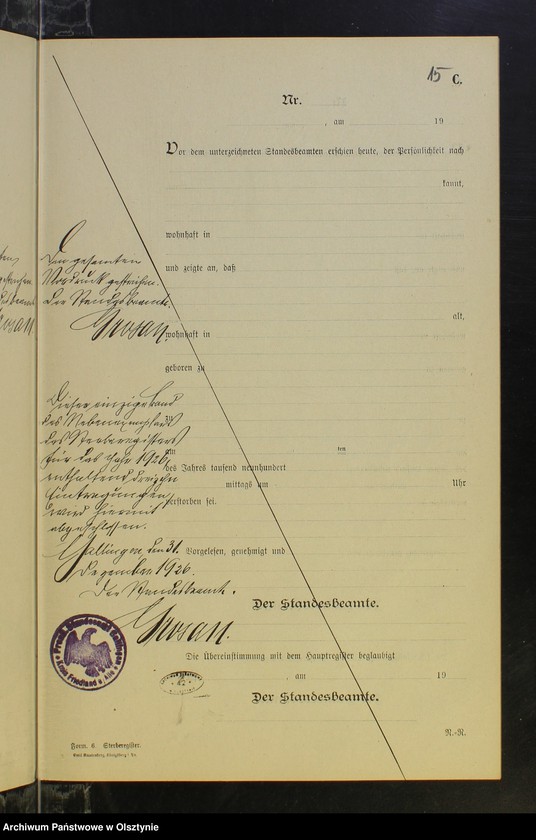 15 C.
Nr.
, am 19
Vor dem unterzeichneten Standesbeamten erschien heute, der Persönlichkeit nach
kannt,
wohnhaft in
und zeigte an, daß
Den gesamten
Vordruck gestrichen.
Der Standesbeamte.
alt,
wohnhaft in
geboren zu
Dieser einzige Band
des Nebenexemplars
zu
des Sterberegisters
am den
für das Jahr 1926,
des Jahres tausend neunhundert
enthaltend dreizehn
mittags um Uhr
Eintragungen,
verstorben sei.
wird hiermit
abgeschlossen.
Gallingen, den 31.
Vorgelesen, genehmigt und
Dezember 1926.
Der Standesbeamte.
Der Standesbeamte.
Preuß. Standesamt Gallingen
Kreis Friedland a. Alle
Die Übereinstimmung mit dem Hauptregister beglaubigt
, am 19
Der Standesbeamte.
N.-R.
Form. 6. Sterberegister.
Archiwum Państwowe w Olsztynie